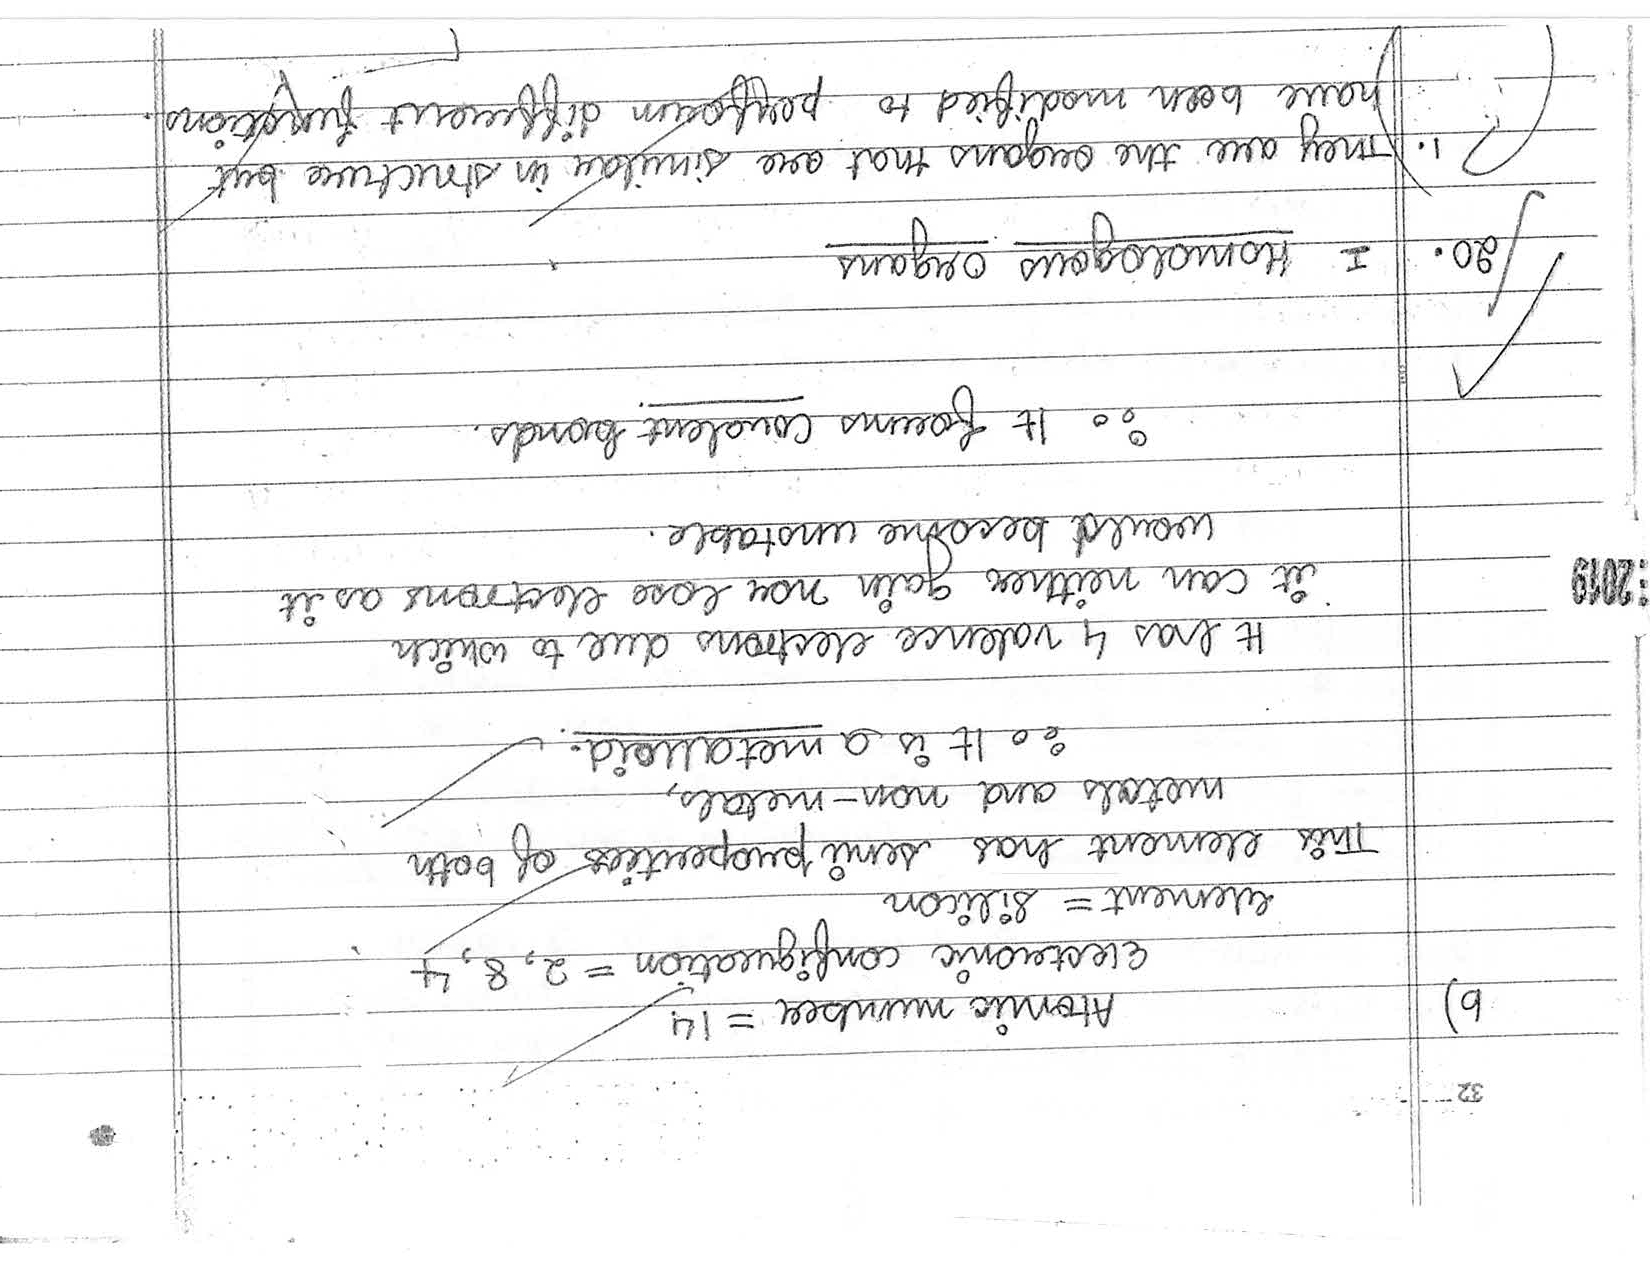 32
b) Atomic number = 14
Electronic configuration = 2, 8, 4
element = silicon
This element has semi properties of both
metals and non-metals,
∴ It is a metalloid.
It has 4 valence electrons due to which
it can neither gain nor lose electrons as it
would become unstable.
∴ It forms covalent bonds.
20. I Homologous organs
1. They are the organs that are similar in structure but
have been modified to perform different functions.
:2019